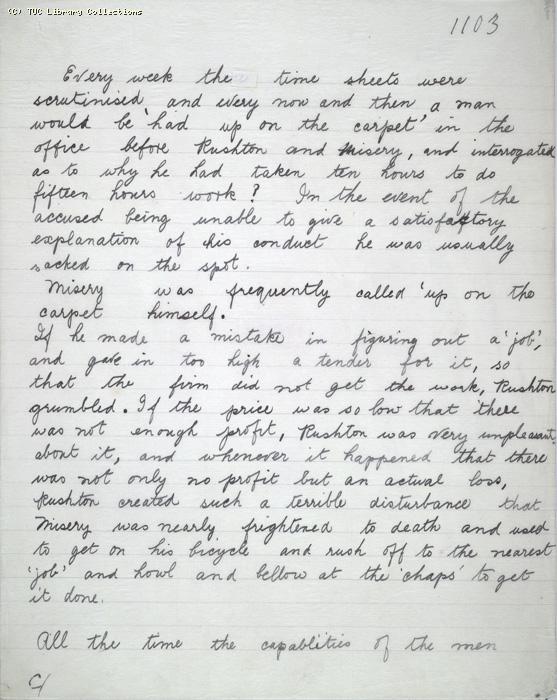 (C) TUC Library Collections
1103
Every week the time sheets were
scrutinised, and every now and then a man
would be 'had up on the carpet' in the
office before Rushton and Misery, and interrogated
as to why he had taken ten hours to do
fifteen hours work? In the event of the
accused being unable to give a satisfactory
explanation of his conduct he was usually
sacked on the spot.
Misery was frequently called 'up on the
carpet himself.
If he made a mistake in figuring out a 'job',
and gave in too high a tender for it, so
that the firm did not get the work, Rushton
grumbled. If the price was so low that there
was not enough profit, Rushton was very unpleasant
about it, and whenever it happened that there
was not only no profit but an actual loss,
Rushton created such a terrible disturbance that
Misery was nearly frightened to death and used
to get on his bicycle and rush off to the nearest
'job' and howl and bellow at the 'chaps' to get
it done.
All the time the capablities of the men